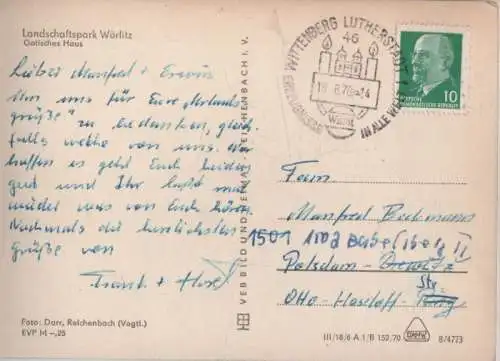 Landschaftspark Wörlitz
Gotisches Haus
Lieber Manfred + Erwin
Um uns für Eure Urlaubs
grüße zu bedanken, gleich
falls welche von uns. Wir
hoffen es geht Euch beiden
gut und Ihr laßt mal
wieder was von Euch hören
Nochmals die herzlichsten
Grüße von
Foto: Darr, Reichenbach (Vogtl.)
EVP M -,25
VEB BILD UND HEIMAT REICHENBACH I. V.
WITTENBERG LUTHERSTADT 1
46
18.8.70-14
IN ALLE WELT
DEUTSCHE
DEMOKRATISCHE REPUBLIK
10
Fam
Manfred Bachmann
1501 1502 Babelsberg II
Potsdam-Drewitz
Str.
Otto-Haseloff-Ring
III/18/6 A 1/B 152/70
8/4773